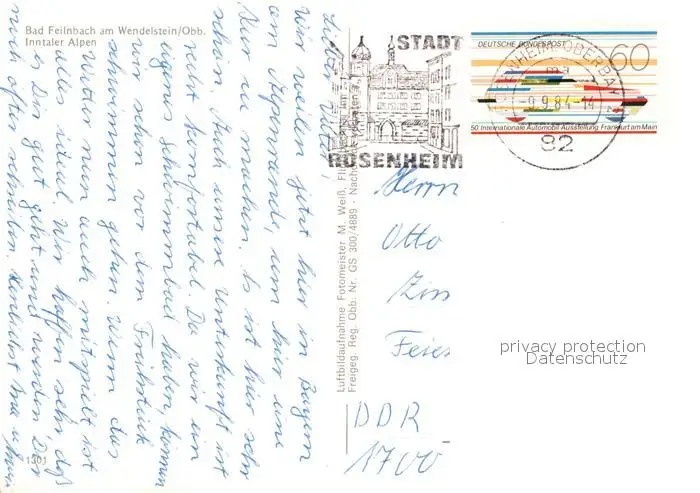 Bad Feilnbach am Wendelstein/Obb.
Inntaler Alpen
wir sind jetzt hier in Bayern
am Alpenrand, um hier eine
Kur zu machen. Es ist hier sehr
schön. Auch unsere Unterkunft ist
recht komfortabel. Da wir ein
eigenes Schwimmbad haben, können
wir schon vor dem Frühstück
schwimmen gehen. Wenn das
Wetter auch mitspielt ist
alles ideal. Wir hoffen sehr, daß
es Dir gut geht und werden Dir
noch oft schreiben. Herzlichst
1301
Luftbildaufnahme Fotomeister M. Weiß,
Freigeg. Reg. Obb. Nr. GS 300/4689
STADT
ROSENHEIM
DEUTSCHE BUNDESPOST
60
50 Internationale Automobil Ausstellung Frankfurt am Main
-9.9.84-14
82
Herrn
Otto
DDR
1700
privacy protection
Datenschutz